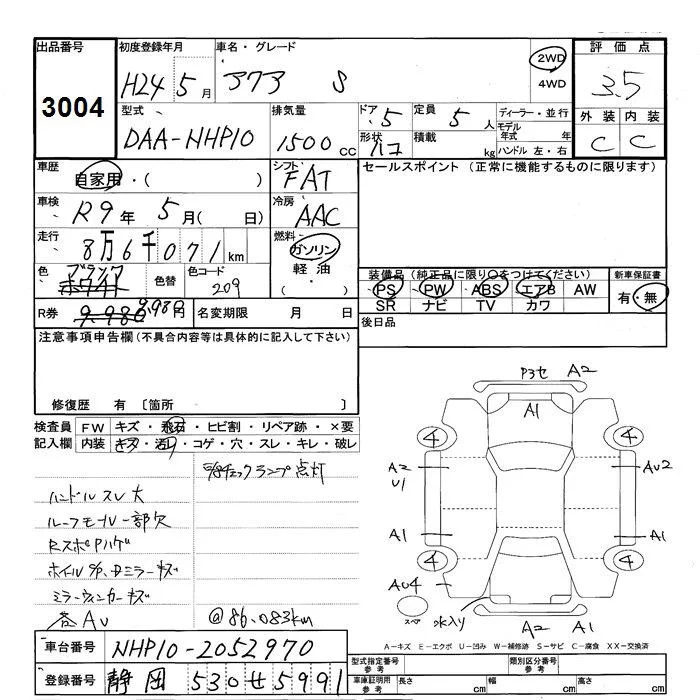 出品番号 初度登録年月 車名・グレード 評価点
3004 H24年5月 アクア S 2WD 4WD 3.5
型式 排気量 ドア 5 定員 5人 ディーラー・並行 外装 内装
DAA-NHP10 1500cc 形状 ハコ 積載 kg モデル年式 年 ハンドル 左・右 C C
車歴 自家用・( ) シフト FAT セールスポイント (正常に機能するものに限ります)
車検 R9年 5月( 日) 冷房 AAC
走行 8万6千071km 燃料 ガソリン 軽油 ( )
色 ブラック ホワイト 色替 色コード 209
装備品 (純正品に限り○をつけてください) 新車保証書
PS PW ABS エアB AW 有・無
SR ナビ TV カワ
R券 9,980 9,980円 名変期限 月 日 後日品
注意事項申告欄(不具合内容等は具体的に記入して下さい)
修復歴 有 〔箇所 〕
検査員 FW キズ・飛石・ヒビ割・リペア跡・×要
記入欄 内装 キズ・汚れ・コゲ・穴・スレ・キレ・破レ
チェックランプ点灯
ハンドルスレ大
ルーフモール一部欠
RスポPハゲ
ホイルキズ、Dミラーキズ
ミラーウィンカーキズ
各AU @86.083km
P3セ A2
A1
4 4
A2 AU2
U1
A1 A1
4 4
AU4
スペア 水入り A2 A1
A-キズ E-エクボ U-凹み W-補修跡 S-サビ C-腐食 XX-交換済
車台番号 NHP10-2052970
登録番号 静岡 530せ5991
型式指定番号 参考 類別区分番号 参考
車庫証明用 参考 長さ cm 幅 cm 高さ cm